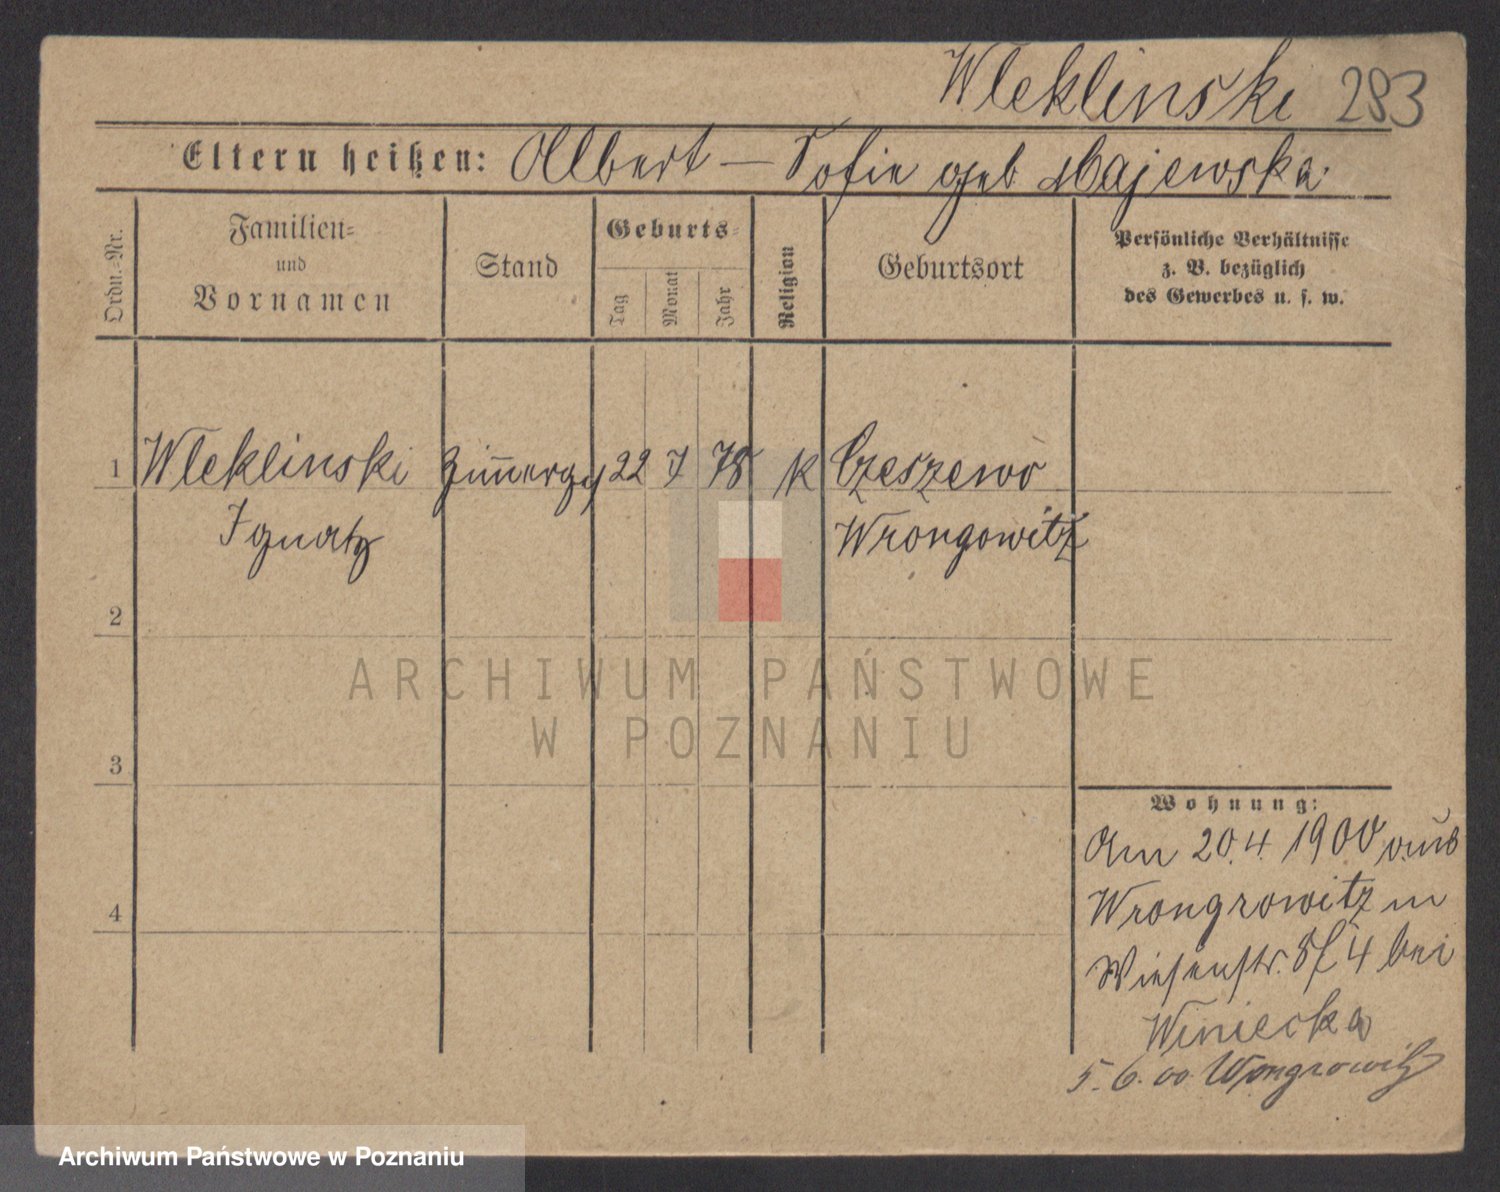 Wleklinski 283
Eltern heißen: Albert — Sofie geb Majewska.
Ordn.-Nr.
Familien-
und
Vornamen
Stand
Geburts-
Tag
Monat
Jahr
Religion
Geburtsort
Persönliche Verhältnisse
z. B. bezüglich
des Gewerbes u. s. w.
1 Wleklinski Zim̅erges 22 7 78 k Czeszewo
Ignatz Wrongowitz
2
3
4
Wohnung:
Am 20.4. 1900 aus
Wrongrowitz in
Wiesenstr. 4 bei
Winiecka
5.6.00. Wongrowitz
ARCHIWUM PAŃSTWOWE
W POZNANIU
Archiwum Państwowe w Poznaniu